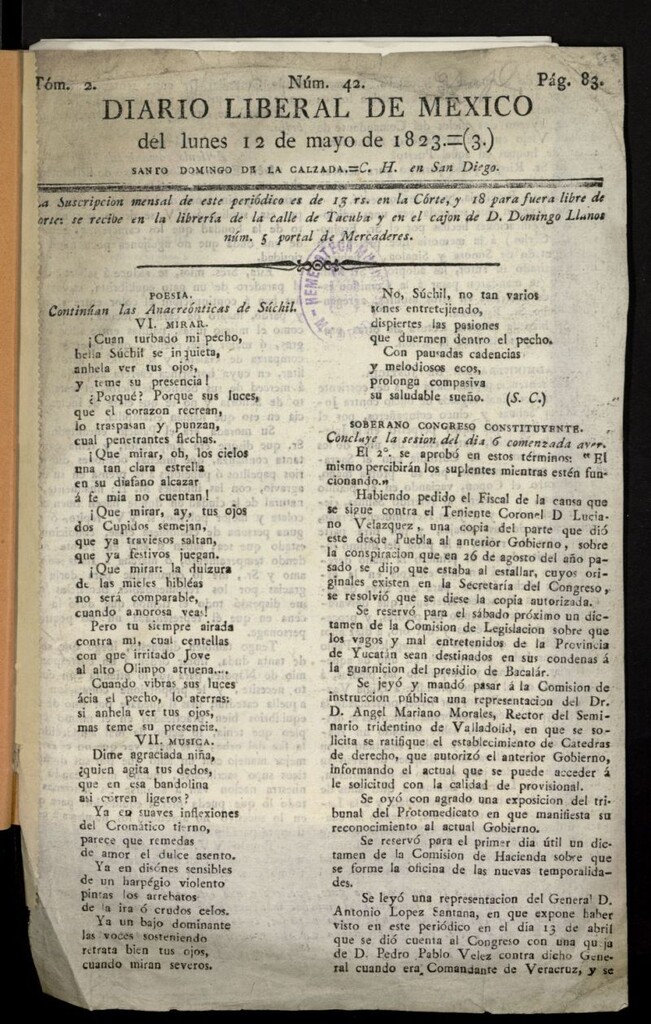 Tóm. 2. Núm. 42. Pág. 83.
DIARIO LIBERAL DE MEXICO
del lunes 12 de mayo de 1823.=(3.)
SANTO DOMINGO DE LA CALZADA.=C. H. en San Diego.
La Suscripcion mensal de este periódico es de 13 rs. en la Córte, y 18 para fuera libre de
orte: se recibe en la librería de la calle de Tacuba y en el cajon de D. Domingo Llanos
núm. 5 portal de Mercaderes.
HEMEROTECA
POESIA.
Continúan las Anacreónticas de Súchil.
VI. MIRAR.
¡Cuan turbado mi pecho,
bella Súchil se inquieta,
anhela ver tus ojos,
y teme su presencia!
¿Porqué? Porque sus luces,
que el corazon recrean,
lo traspasan y punzan,
cual penetrantes flechas.
¡Que mirar, oh, los cielos
una tan clara estrella
en su diafano alcazar
á fe mia no cuentan!
¡Que mirar, ay, tus ojos
dos Cupidos semejan,
que ya traviesos saltan,
que ya festivos juegan.
¡Que mirar: la dulzura
de las mieles hibléas
no será comparable,
cuando amorosa veas!
Pero tu siempre airada
contra mi, cual centellas
con que irritado Jove
al alto Olimpo atruena....
Cuando vibras sus luces
ácia el pecho, lo aterras:
si anhela ver tus ojos,
mas teme su presencia.
VII. MUSICA.
Dime agraciada niña,
¿quien agita tus dedos,
que en esa bandolina
asi corren ligeros?
Ya en suaves inflexiones
del Cromático tierno,
parece que remedas
de amor el dulce asento.
Ya en disónes sensibles
de un harpégio violento
pintas los arrebatos
de la ira ó crudos celos.
Ya un bajo dominante
las voces sosteniendo
retrata bien tus ojos,
cuando miran severos.
No, Súchil, no tan varios
sones entretejiendo,
dispiertes las pasiones
que duermen dentro el pecho.
Con pausadas cadencias
y melodiosos ecos,
prolonga compasiva
su saludable sueño. (S. C.)
SOBERANO CONGRESO CONSTITUYENTE.
Concluye la sesion del dia 6 comenzada ayer.
El 2º. se aprobó en estos términos: "El
mismo percibirán los suplentes mientras estén fun-
cionando."
Habiendo pedido el Fiscal de la causa que
se sigue contra el Teniente Coronel D Lucia-
no Velazquez, una copia del parte que dió
este desde Puebla al anterior Gobierno, sobre
la conspiracion que en 26 de agosto del año pa-
sado se dijo que estaba al estallar, cuyos ori-
ginales existen en la Secretaría del Congreso,
se resolvió que se diese la copia autorizada.
Se reservó para el sábado próximo un dic-
tamen de la Comision de Legislacion sobre que
los vagos y mal entretenidos de la Provincia
de Yucatán sean destinados en sus condenas á
la guarnicion del presidio de Bacalár.
Se leyó y mandó pasar á la Comision de
instruccion pública una representacion del Dr.
D. Angel Mariano Morales, Rector del Semi-
nario tridentino de Valladolid, en que se so-
licita se ratifique el establecimiento de Catedras
de derecho, que autorizó el anterior Gobierno,
informando el actual que se puede acceder á
le solicitud con la calidad de provisional.
Se oyó con agrado una exposicion del tri-
bunal del Protomedicato en que manifiesta su
reconocimiento al actual Gobierno.
Se reservó para el primer dia útil un dic-
tamen de la Comision de Hacienda sobre que
se forme la oficina de las nuevas temporalida-
des.
Se leyó una representacion del General D.
Antonio Lopez Santana, en que expone haber
visto en este periódico en el dia 13 de abril
que se dió cuenta al Congreso con una queja
de D. Pedro Pablo Velez contra dicho Gene-
ral cuando era Comandante de Veracruz, y se